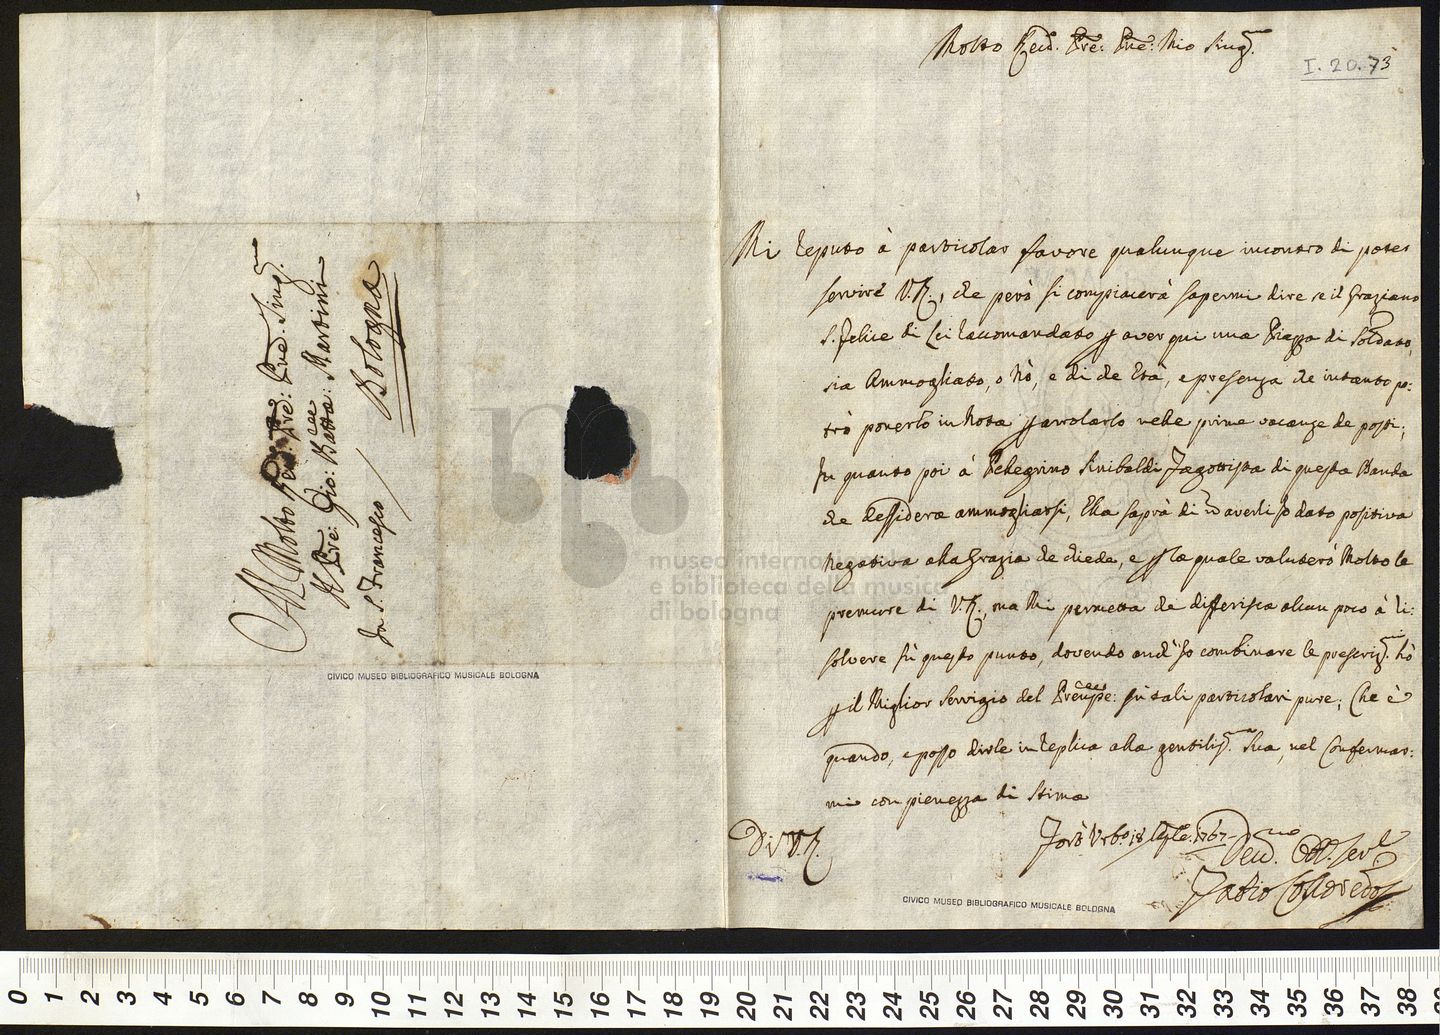 Al Molto Rev: Pre: Pre: Sing.mo
Il Pre: Gio: Batta: Martini
Bologna
In S. Francesco
CIVICO MUSEO BIBLIOGRAFICO MUSICALE BOLOGNA
museo internazionale
e biblioteca della musica
di bologna
Molto Red. Pre: Pne: Mio Sing.mo
I. 20. 73
Mi reputo à particolar favore qualunque incontro di poter
servire V.R., che però si compiacerà sapermi dire se il Graziano
S. Felice di Lei raccomandato p aver qui una Piazza di Soldato,
sia Ammogliato, o nò, e di che Età, e presenza che intanto po:
trò ponerlo in Nota p arrolarlo nelle prime vacanze de posti;
In quanto poi à Pellegrino Sinibaldi Fagottista di questa Banda
che desidera ammogliarsi, Ella saprà di averli Io dato positiva
Negativa alla Grazia che chiede, e p la quale valuterò Molto le
premure di V.R., ma Mi permetta che differisca alcun poco à ri:
solvere sù questo punto, dovendo anch' Io combinare le prescriz. hò
p il Miglior Servigio del Prencipe: sù tali particolari pure; Che è
quando, e posso dirle in replica alla gentiliss.ma Sua, nel Confermar:
mi con pienezza di Stima
Di V.R.
Forte Urbo 18 1767
Fabio Colloredo
CIVICO MUSEO BIBLIOGRAFICO MUSICALE BOLOGNA
0 1 2 3 4 5 6 7 8 9 10 11 12 13 14 15 16 17 18 19 20 21 22 23 24 25 26 27 28 29 30 31 32 33 34 35 36 37 38